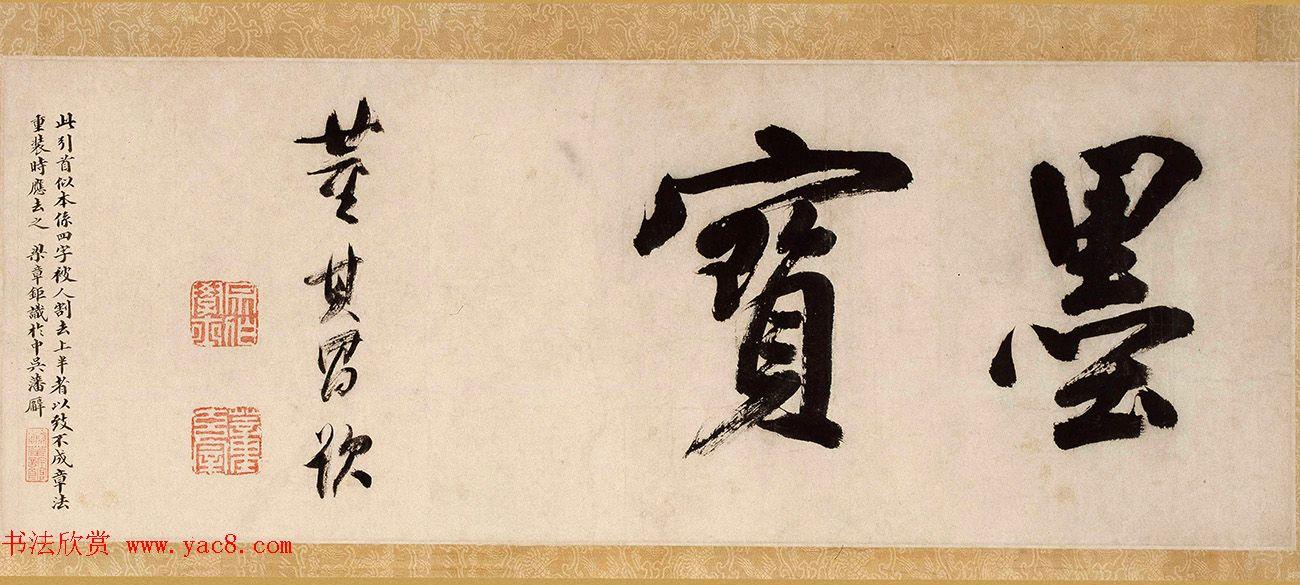 墨寶
董其昌欵
此引首似本係四字被人割去上半者以致不成章法
重裝時應去之 梁章鉅識於中吳藩廨
书法欣赏 www.yac8.com